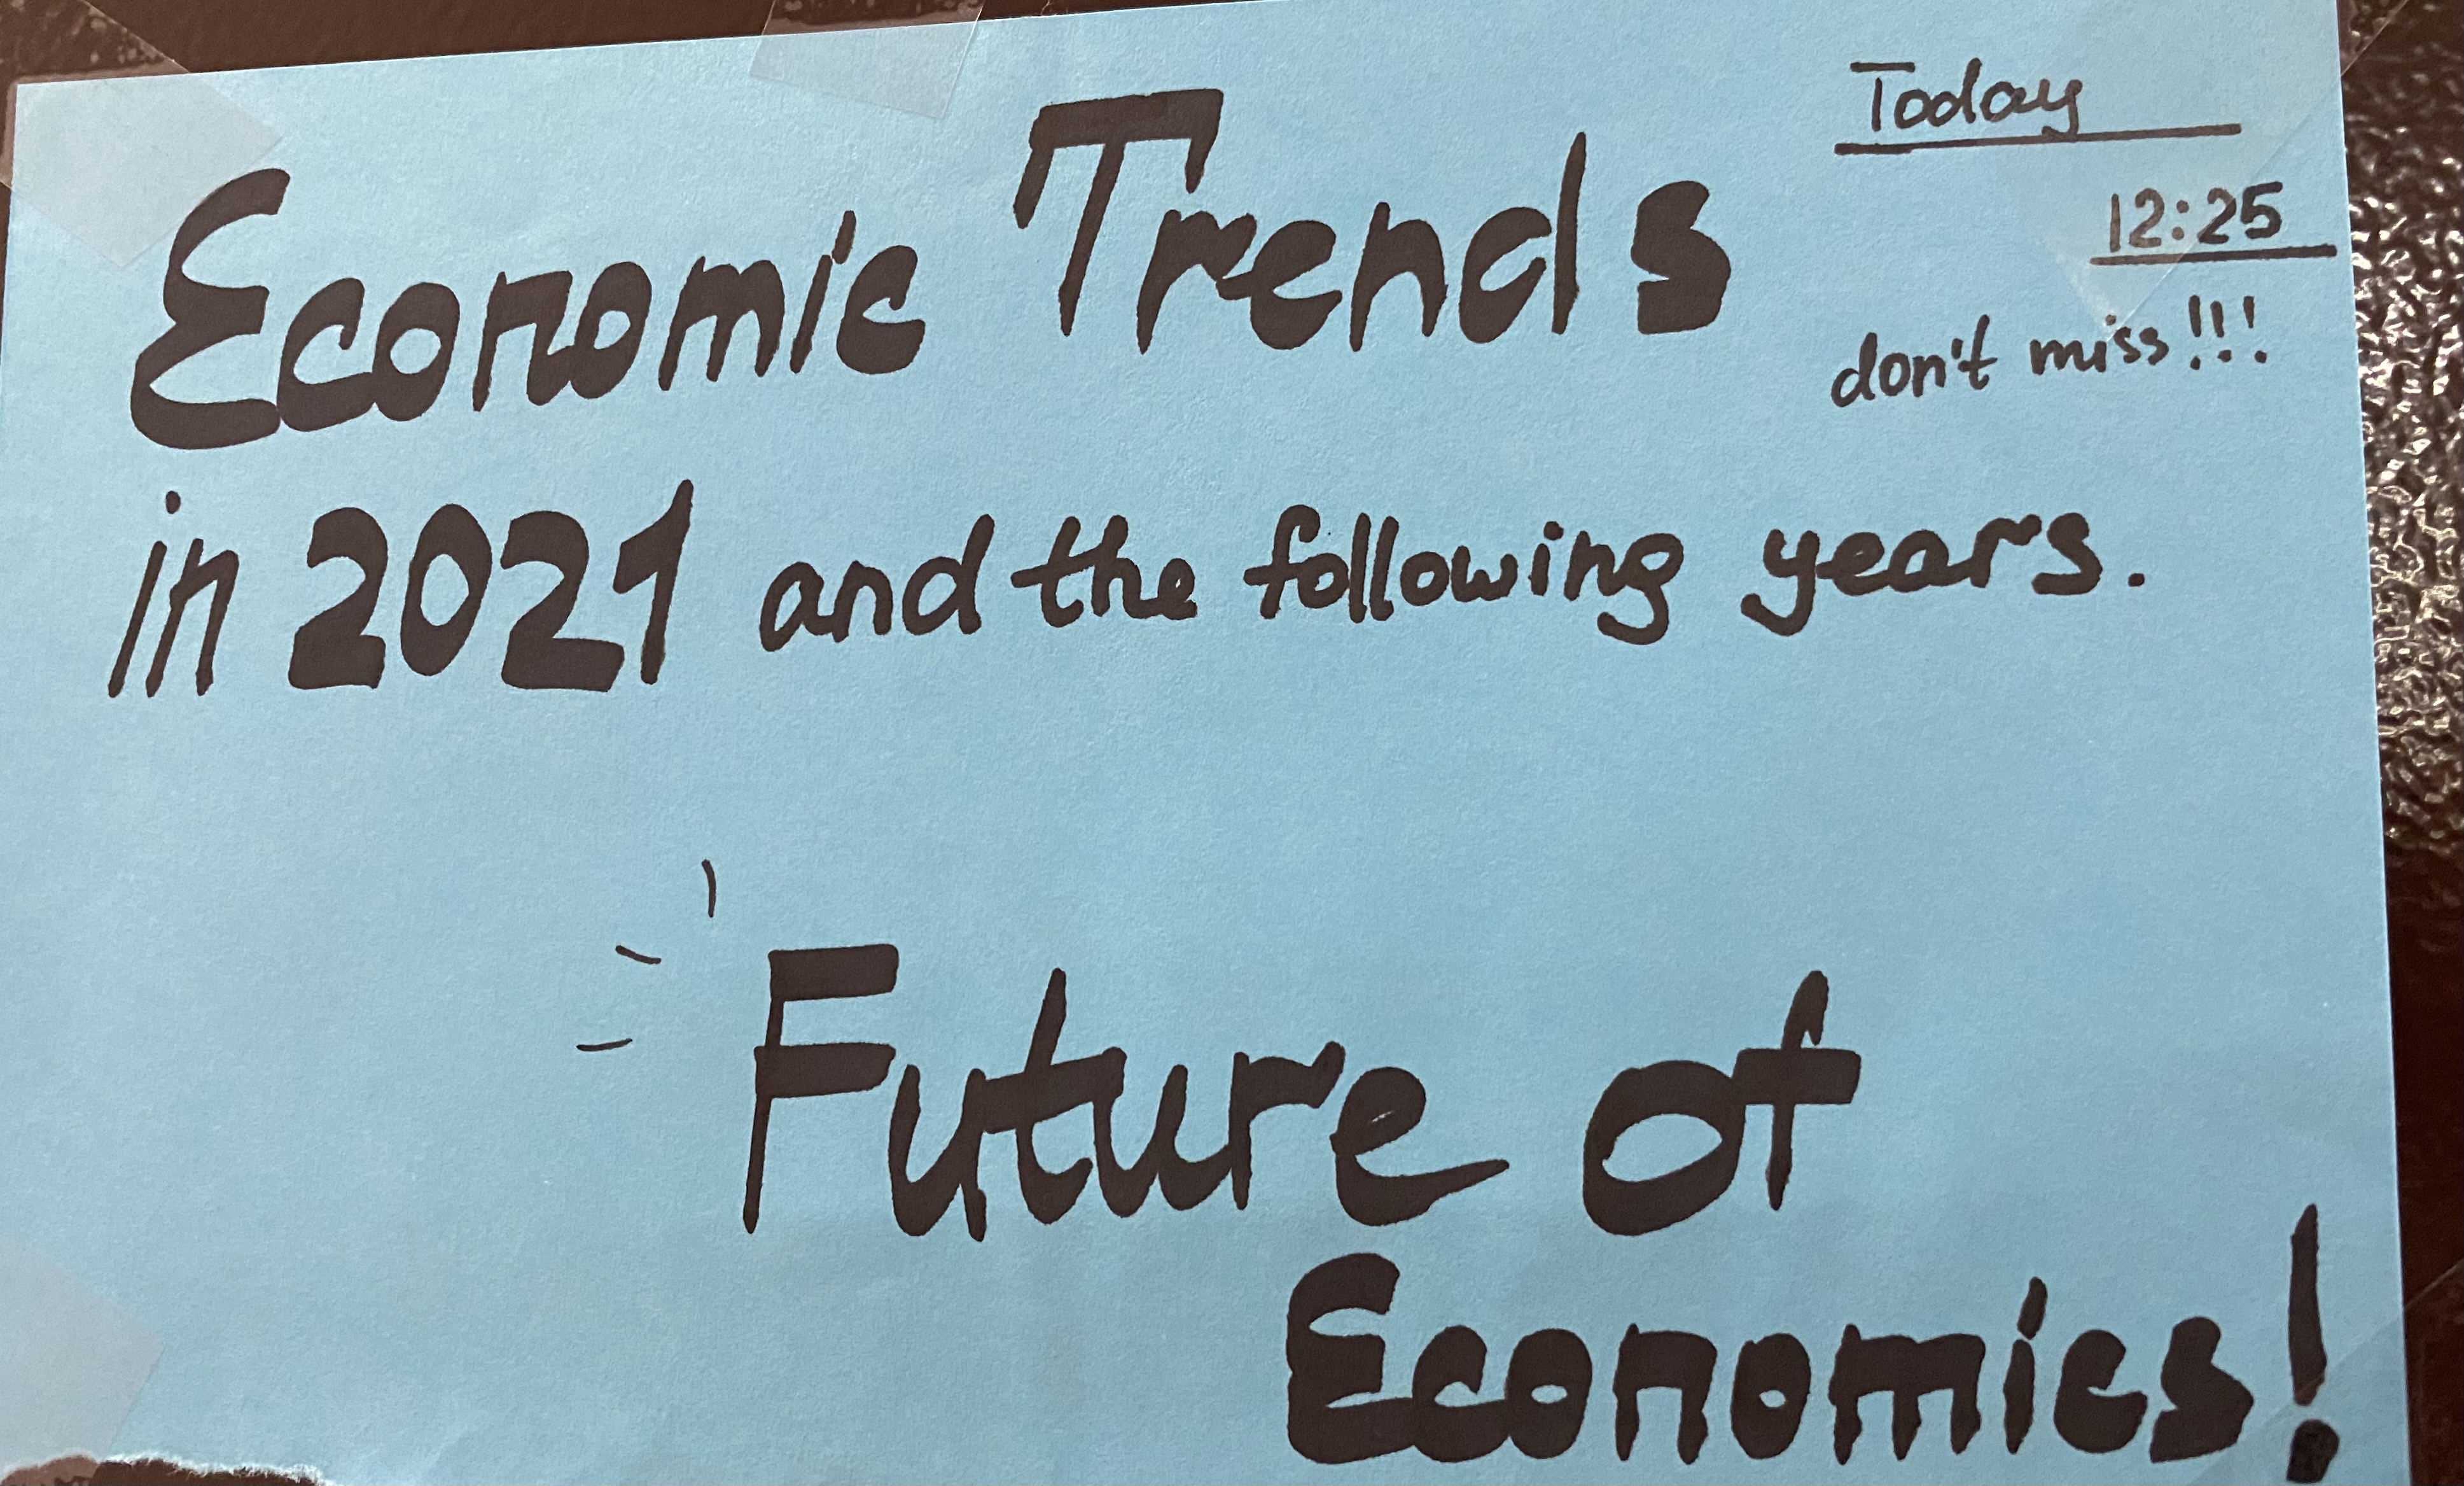 Economic Trends
in 2021 and the following years.
Today
12:25
don't miss!!!
Future of
Economics!